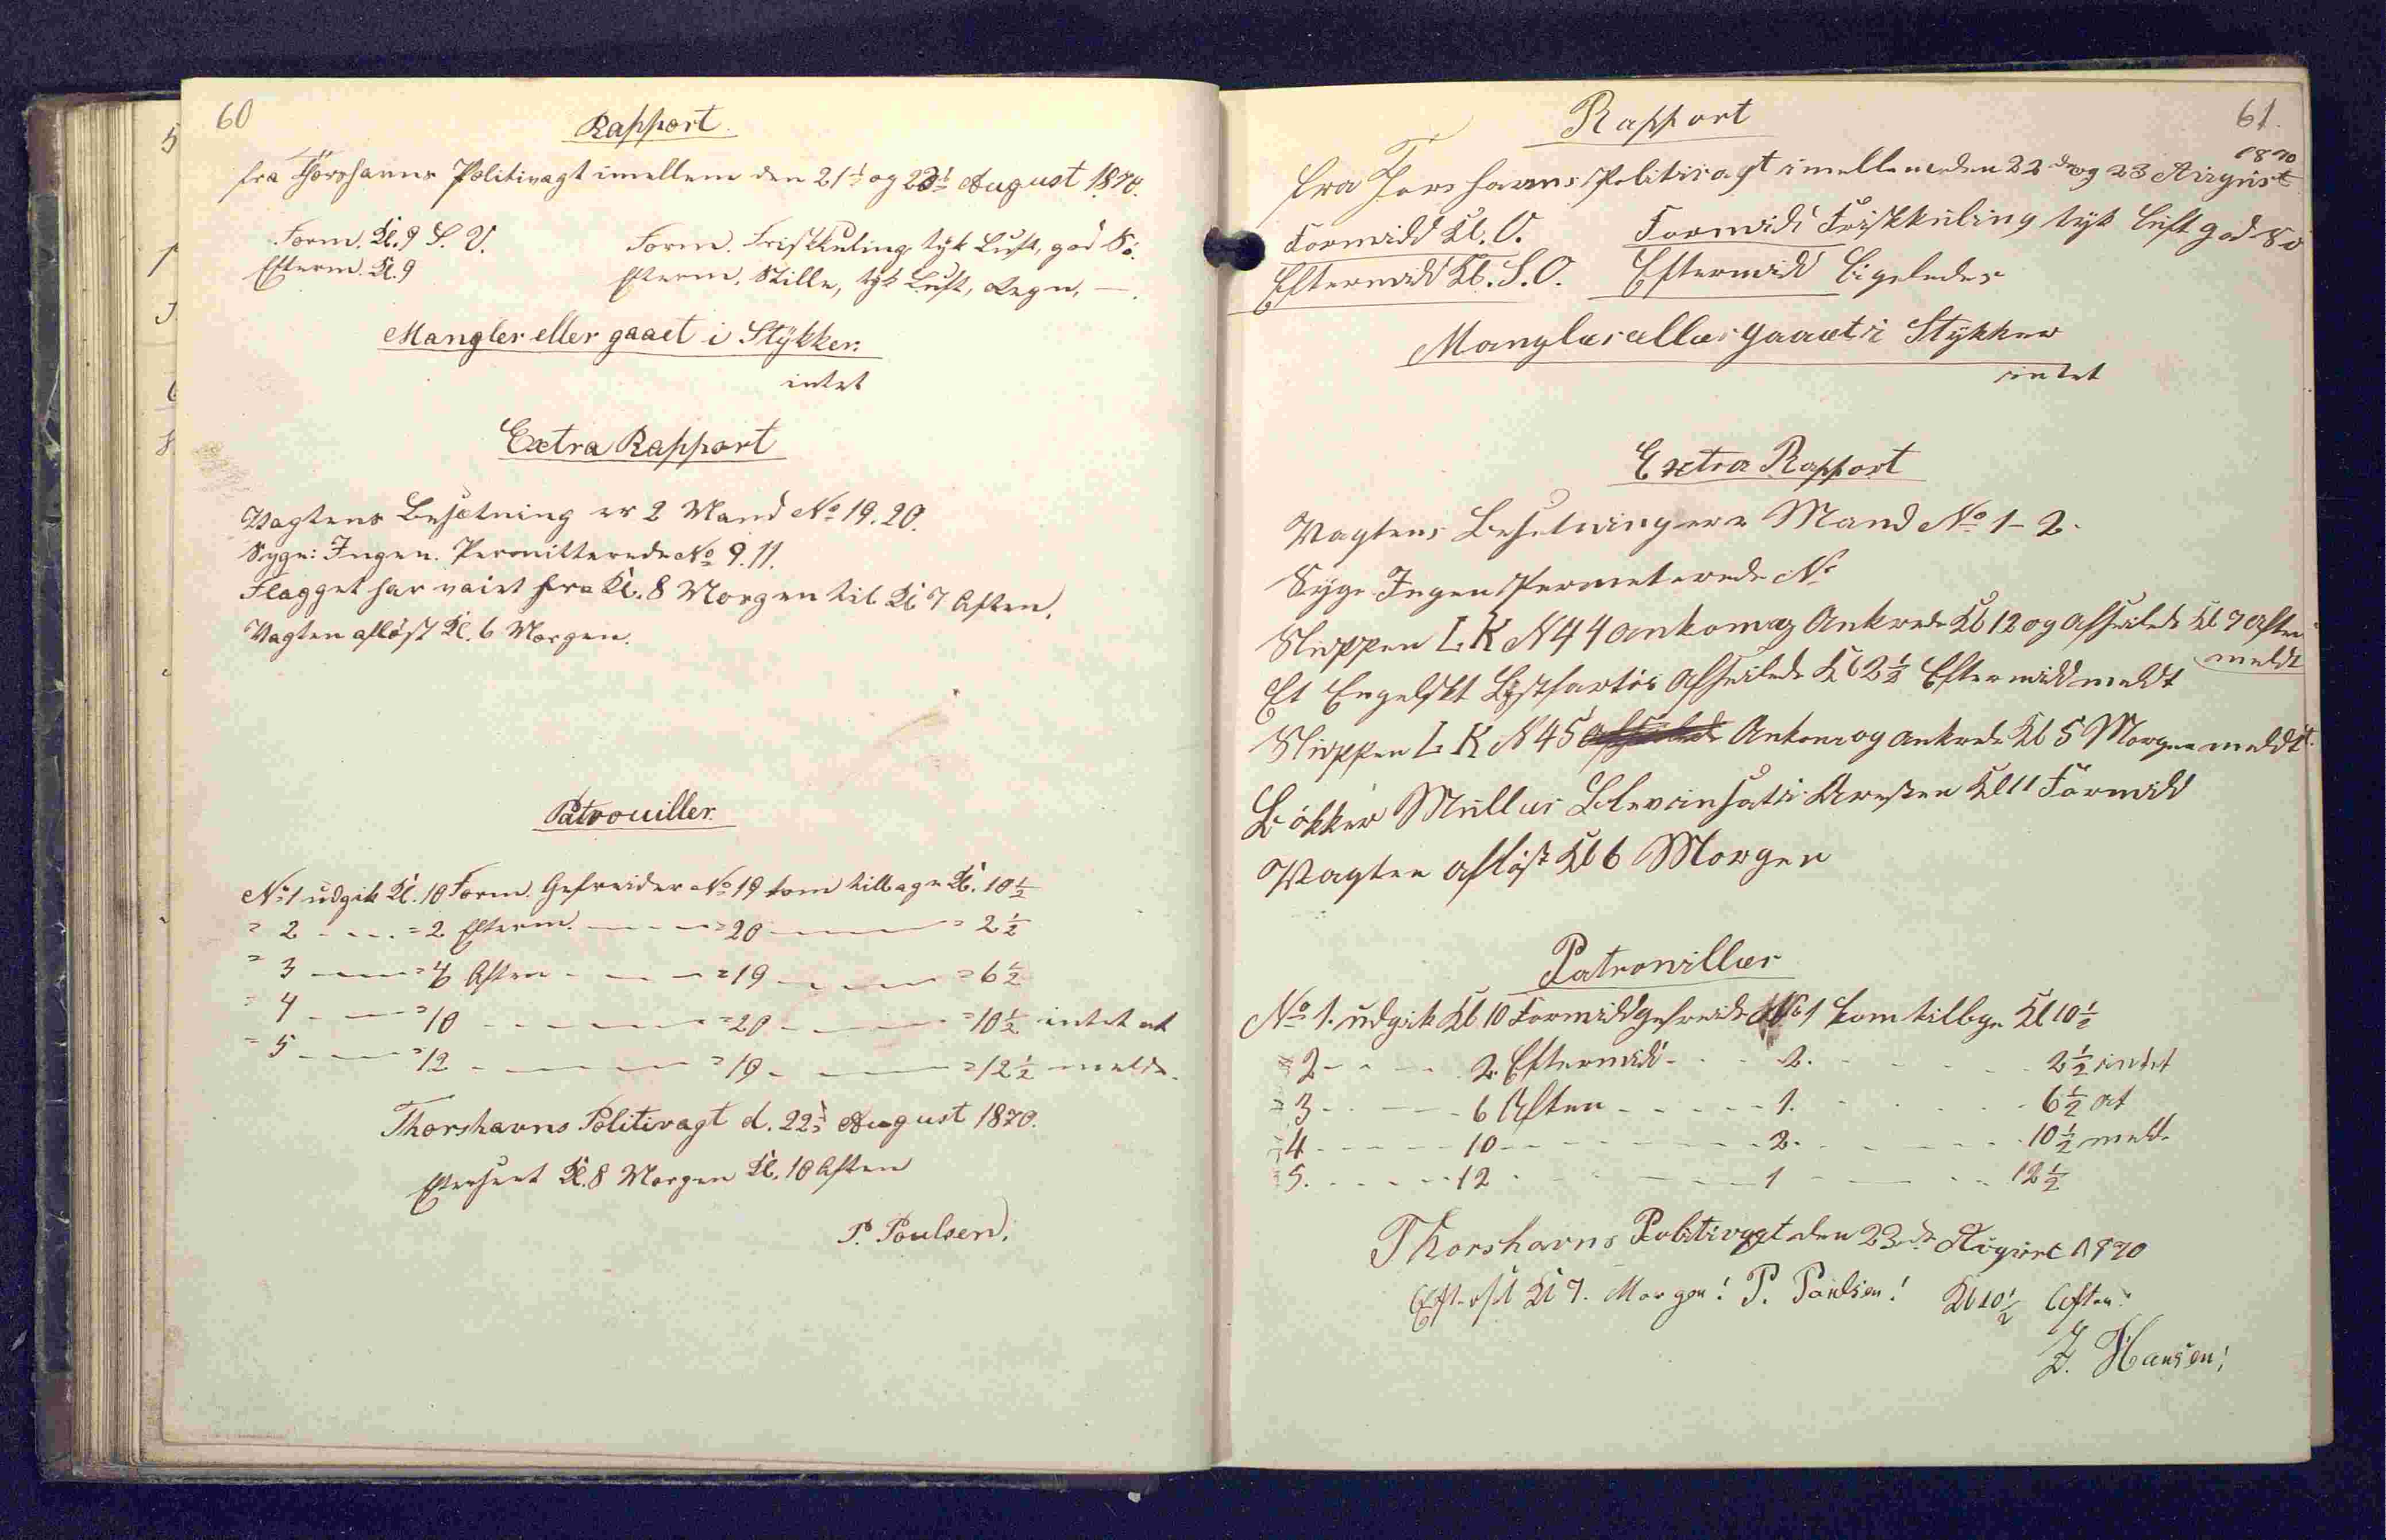 60
Rapport.
fra Thorshavns Politivagt imellem den 21de og 22de August 1870.
Form. Kl. 9 S. V. Form. Friskkuling tyk Luft, god Sö.
Efterm. Kl. 9 Efterm. Stille, tyk Luft, Regn, —.
Mangler eller gaaet i Stÿkker.
intet
Extra Rapport
Vagtens Besætning er 2 Mand No 19. 20.
Syge: Ingen. Permitterede No 9. 11.
Flagget har vaiet fra Kl. 8 Morgen til Kl 7 Aften.
Vagten aflöst Kl. 6 Morgen.
Patrouiller.
No 1 udgik Kl. 10 Form. Gefreider No 19 kom tilbage Kl. 10½
= 2 - - - = 2 Efterm. — - — = 20 ——— = 2½
= 3 — — = 6 Aften - — - — = 19 — — — = 6½
= 4 - — = 10 - — - — - — = 20 - — — = 10½ intet at
= 5 - — = 12 - — - — - — = 19 - — — = 12½ melde.
Thorshavns Politivagt d. 22de August 1870.
Efterseet Kl. 8 Morgen Kl. 10 Aften
P. Poulsen.
61.
Rapport
fra Thorshavns Politivagt imellem den 22de og 23 August 1870
Formidd Kl. O. Formidd Friskkuling tyk luft god Sö
Eftermidd Kl. S. O. Eftermidd ligeledes
Mangler eller gaaet i Stykker
intet
Extra Rapport
Vagtens Besetning er 2 Mand No 1 - 2.
Syge Ingen Permeterede No
Sluppen L K N 44 ankom og Ankrede Kl 12 og afseilede Kl 7 Aften
meldt
Et Engelskt Lystfartöi afseilede Kl 2½ Eftermidd meldt
Sluppen L K N 45 afseilede Ankom og ankrede Kl 5 Morgen meldt.
Bökker Muller Blev insat i Aresten Kl 11 Formidd
Vagten aflöst Kl 6 Morgen
Patrouiller
No 1. udgik Kl 10 Formidd gefreide No 1 kom tilbge Kl 10½
= 2 - - - - 2 Eftermidd - - - 2. - - - - 2½ intet
= 3 - - - - 6 Aften - - - - - 1. - - - - 6½ at
= 4 - - - - 10 - - - - - - 2. - - - - 10½ meld.
= 5. - - - - 12 - - - - - - 1 - - - - 12½
Thorshavns Politivagt den 23de August 1870
Efterset Kl 7. Morgen! P. Poulsen! Kl 10½ Aften.
J. Hansen;